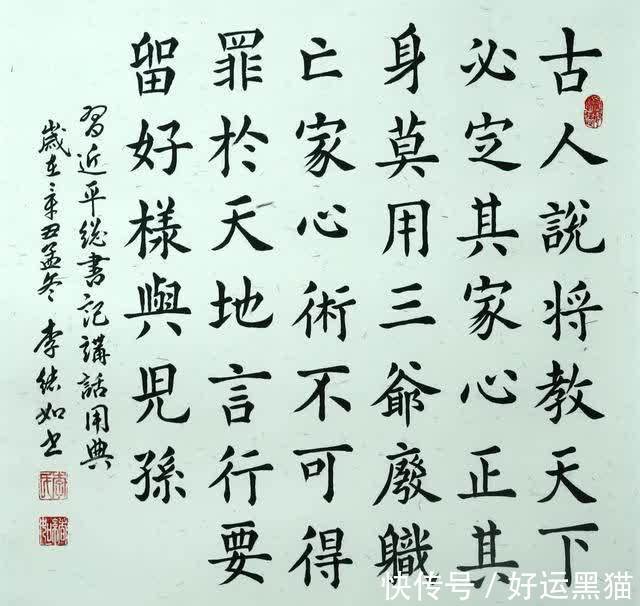 古人說将教天下
必定其家心正其
身莫用三爺廢職
亡家心術不可得
罪於天地言行要
留好樣與兒孫
習近平総書記講話用典
歲在辛丑孟冬 李継如书
快传号／好运黑猫